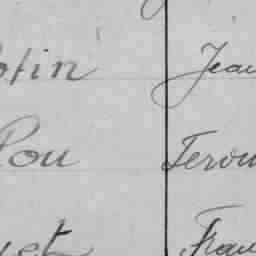 otin Jean
Pou Jerom
uet Fran